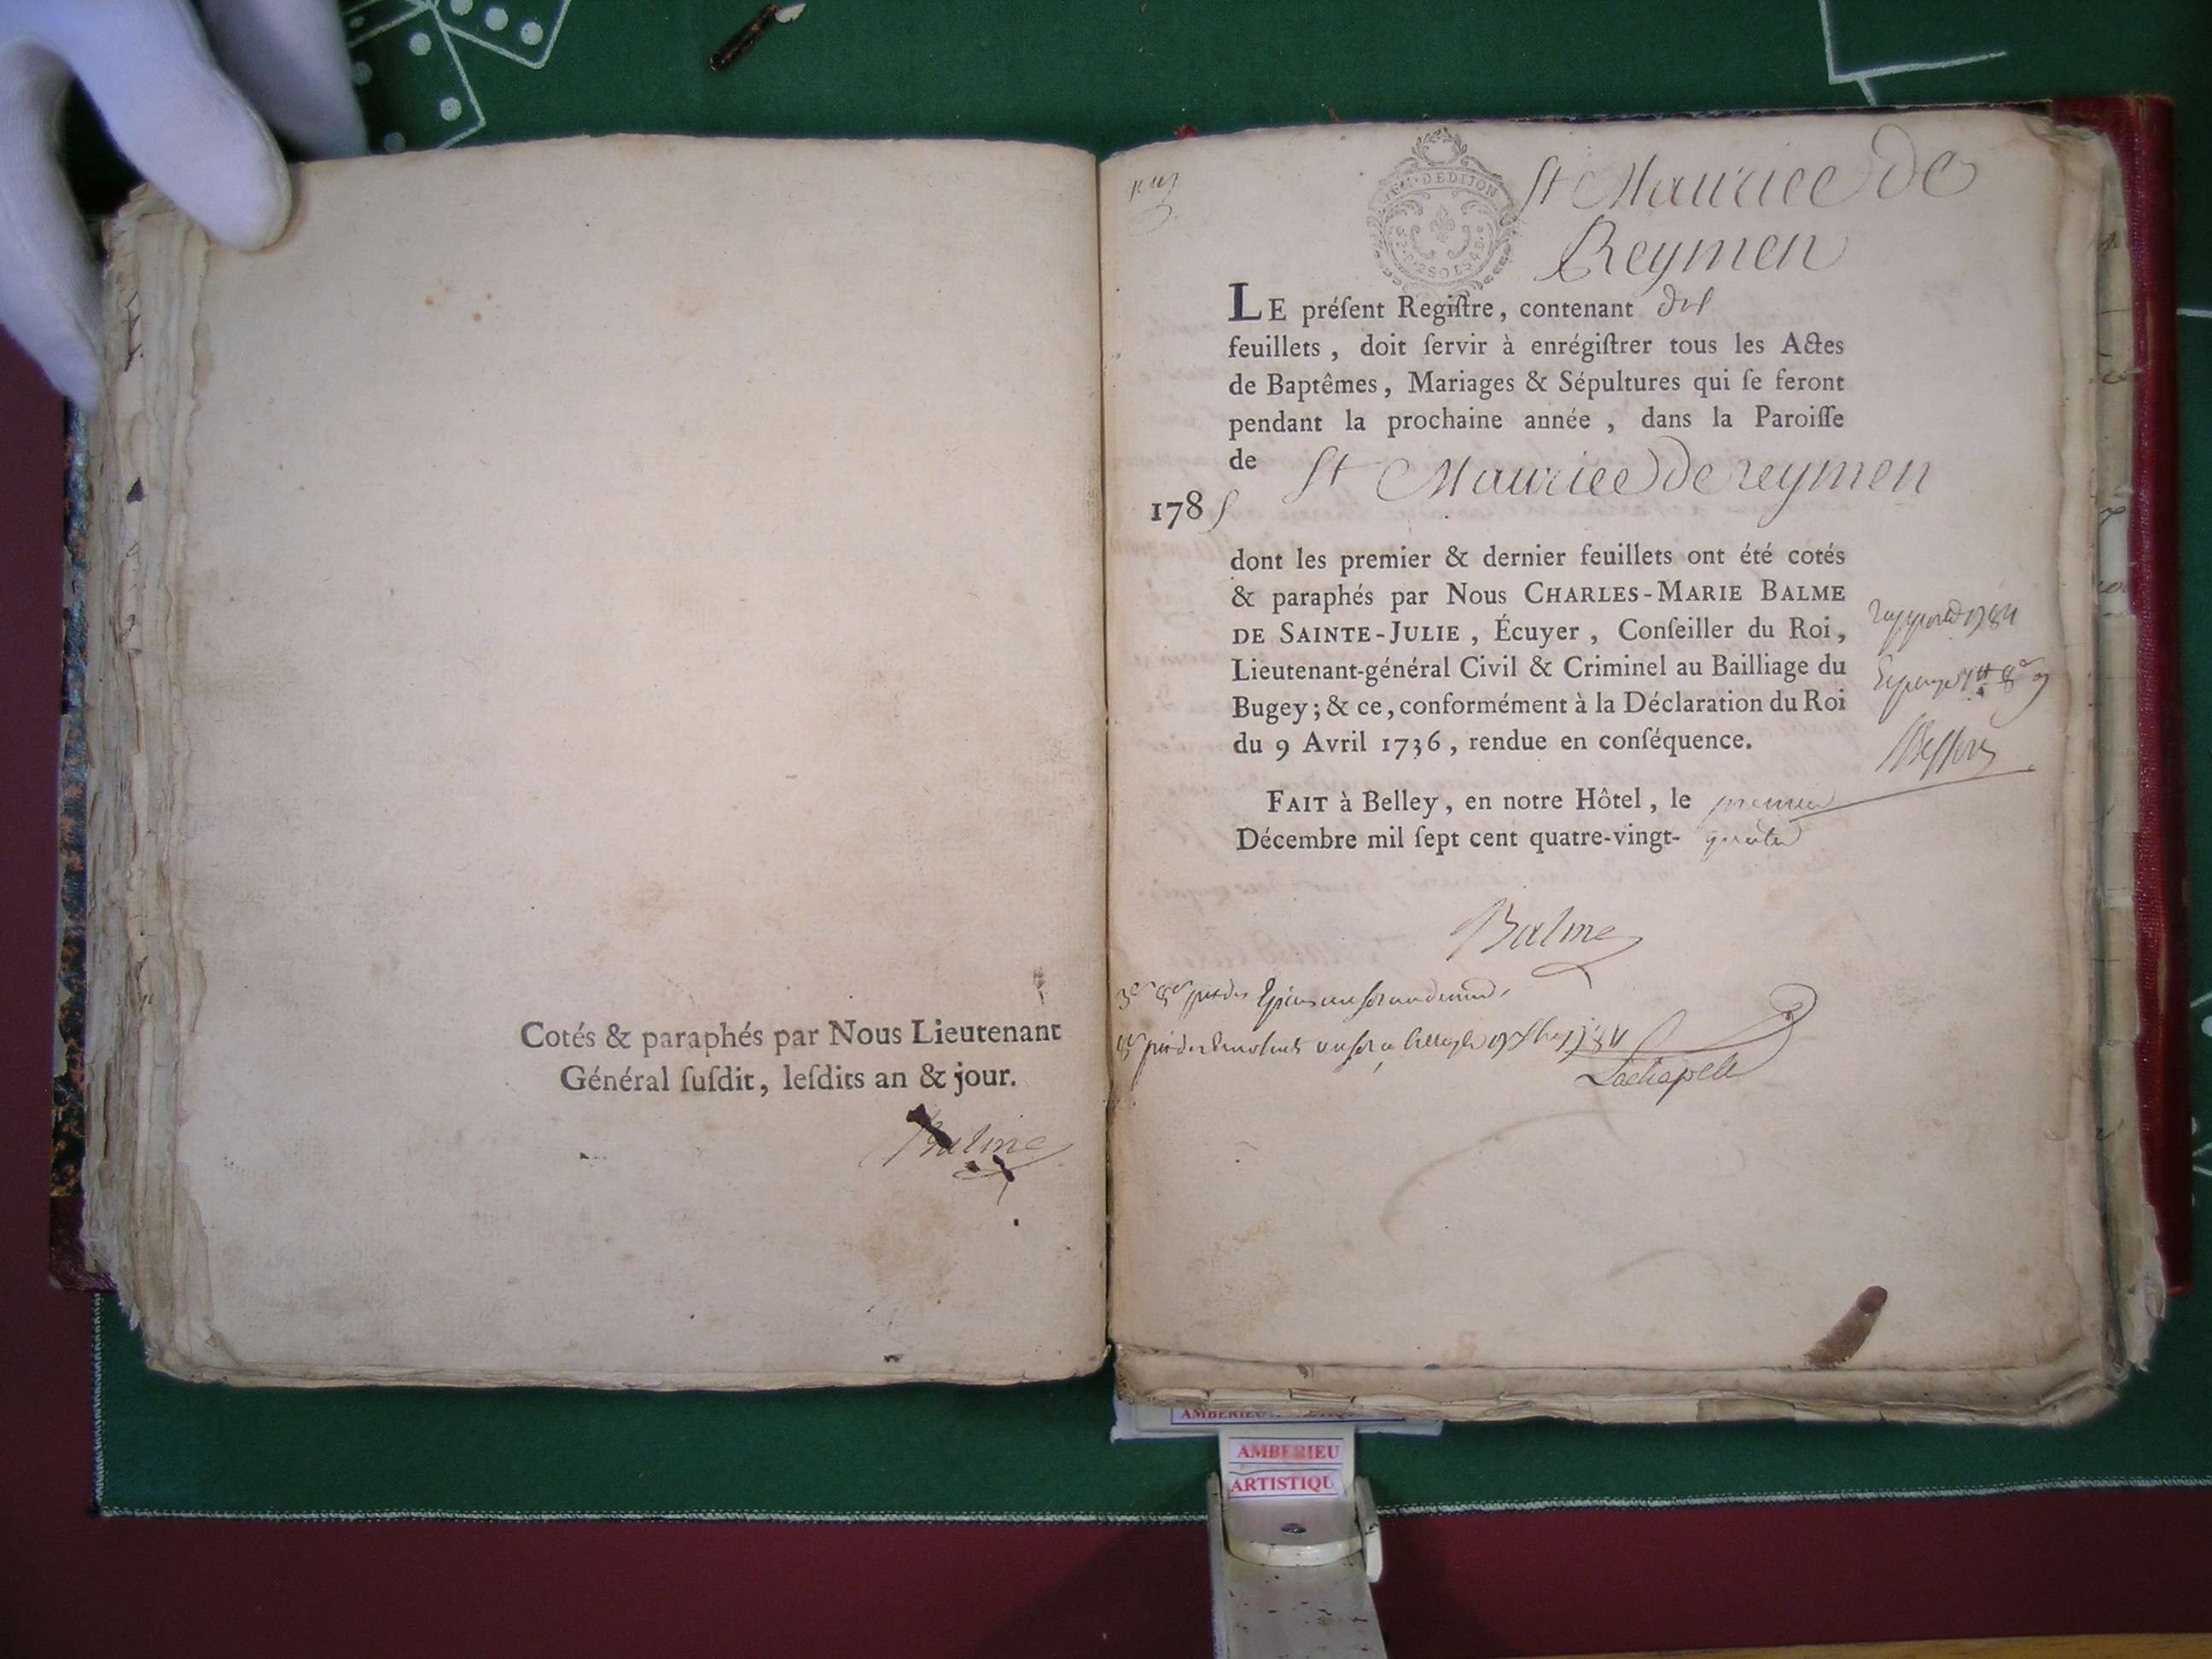 Cotés & paraphés par Nous Lieutenant
Général ſuſdit, leſdits an & jour.
Balme
GEN. DE DIJON
2 SOLS 4 D.
St Maurice de
Reymen
LE préſent Regiſtre, contenant
feuillets, doit ſervir à enrégiſtrer tous les Actes
de Baptêmes, Mariages & Sépultures qui ſe feront
pendant la prochaine année, dans la Paroiſſe
de St Maurice de reymen
1785
dont les premier & dernier feuillets ont été cotés
& paraphés par Nous CHARLES-MARIE BALME
DE SAINTE-JULIE, Écuyer, Conſeiller du Roi,
Lieutenant-général Civil & Criminel au Bailliage du
Bugey; & ce, conformément à la Déclaration du Roi
du 9 Avril 1736, rendue en conſéquence.
FAIT à Belley, en notre Hôtel, le premier
Décembre mil ſept cent quatre-vingt- quatre
1784
Balme
Lachapelle
AMBERIEU
AMBERIEU
ARTISTIQU